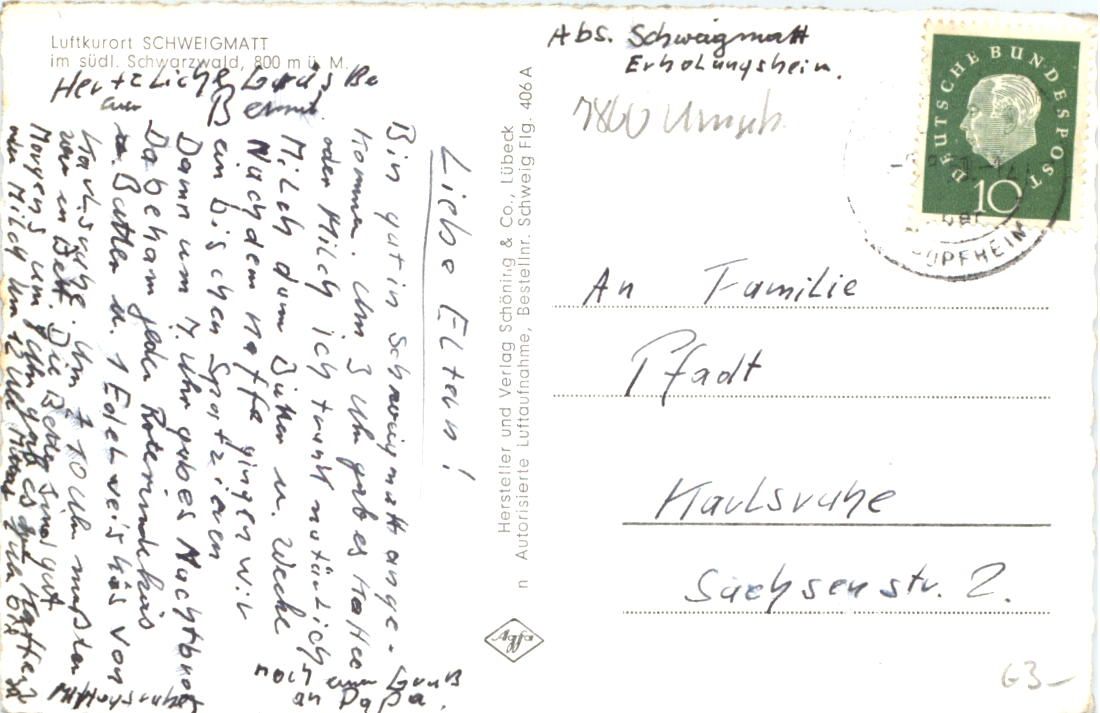 Luftkurort SCHWEIGMATT
im südl. Schwarzwald, 800 m ü. M.
Hertzliche Grüsße
euer Bernd.
Liebe Eltern!
Bin gut in Schweigmatt ange-
kommen. Um 3 Uhr gab es Kaffee
oder Milch ich trank natürlich
Milch dann Butter u. Weche
Nachdem Kaffe gingen wir
ein bischen Spatzieren
Dann um 7. Uhr gab es Nachtbrot
Da bekam jeder
Butter u. 1 Edelweiskäs von
Karlsruhe. Um 10 Uhr mußten
wir in Bett. Die Betten sind gut
Morgens um Uhr gab es Kaffee
oder Milch Um 12 Uhr
Mittagsruhe
noch einen Gruß
an Papa.
Hersteller und Verlag Schöning & Co., Lübeck
n Autorisierte Luftaufnahme, Bestellnr. Schweig Flg. 406 A
Agfa
Abs. Schweigmatt
Erholungsheim.
DEUTSCHE BUNDESPOST
10
OPFHEIM
An Familie
Pfadt
Karlsruhe
Sachsenstr. 2.
G3-